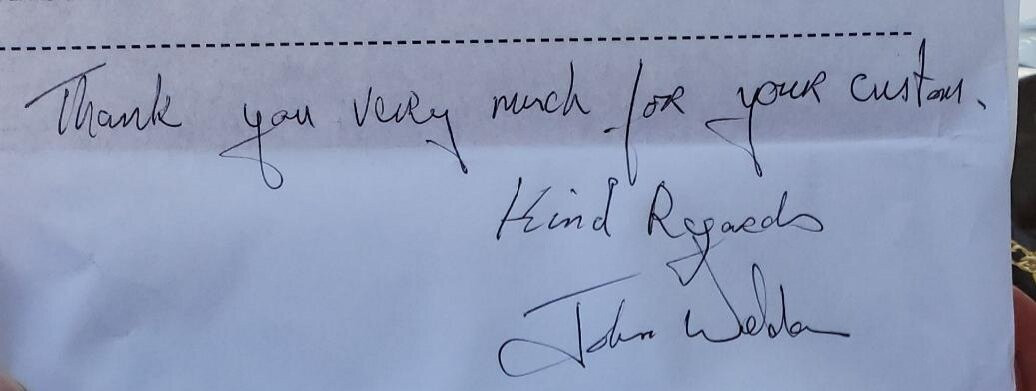 Thank you very much for your custom.
Kind Regards
John